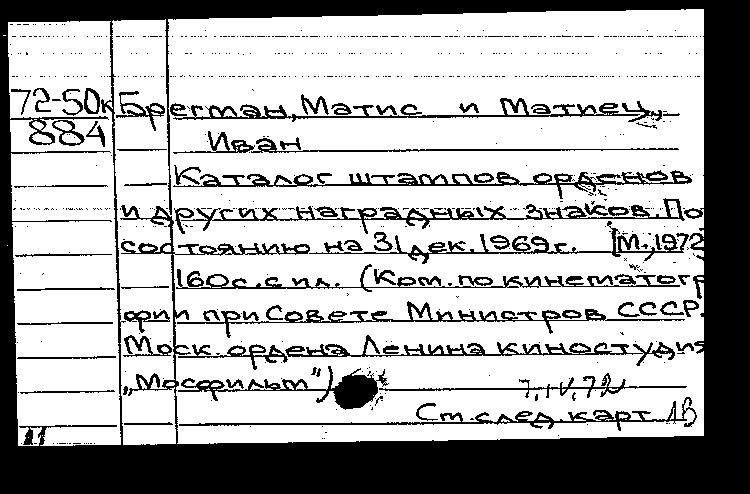 72-50к Брегман, Матис и Матиец,
884 Иван
Каталог штампов орденов
и других наградных знаков. По
состоянию на 31 дек. 1969 г. [М., 1972]
160 с. с ил. (Ком. по кинематогр
фии при Совете Министров СССР.
Моск. ордена Ленина киностудия
„Мосфильм")
7.IV.72
См. след. карт. 1В